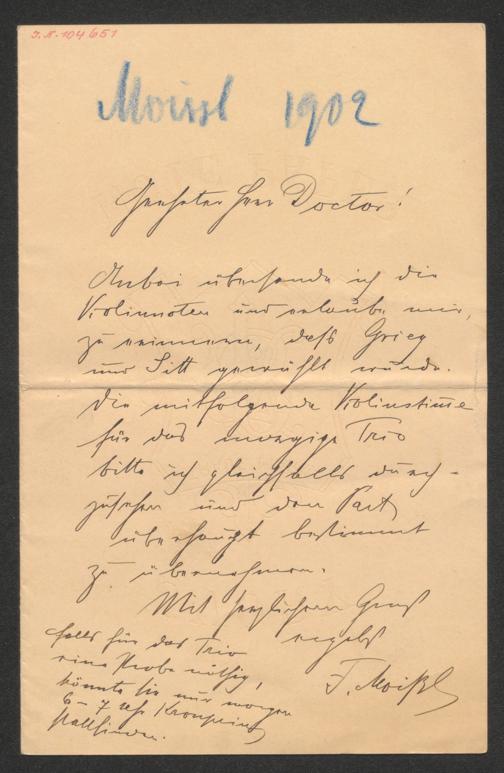 I.N. 104651
Moissl 1902
Geehrter Herr Doctor!
Anbei übersende ich die
Violinnoten und erlaube mir,
zu erinnern, daß Grieg
und Sitt gewählt wurde.
Die mitfolgende Violinstimme
für das Trio
bitte ich gleichfalls durch-
zusehen und den Part
überhaupt bestimmt
zu übernehmen.
Mit herzlichem Gruß
ergebst
F. Moißl
Falls für das Trio
eine Probe nöthig,
könnte sie nur morgen
6-7 Uhr
stattfinden.